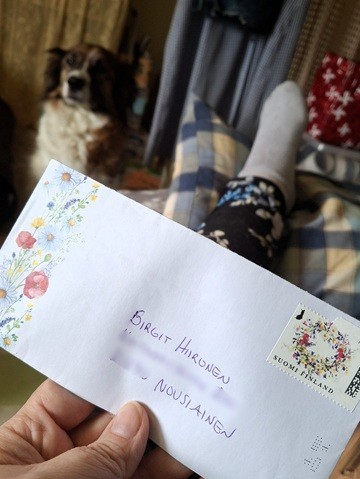 BIRGIT HIRONEN
NOUSIAINEN
SUOMI FINLAND